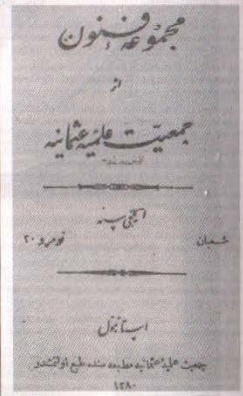 مجموعهٔ فنون
از
جمعيت علميهٔ عثمانيه
ايكنجى سنه
شعبان نومرو ٢٠
استانبول
جمعيت علميهٔ عثمانيه مطبعه سنده طبع اولنمشدر
١٢٨٠